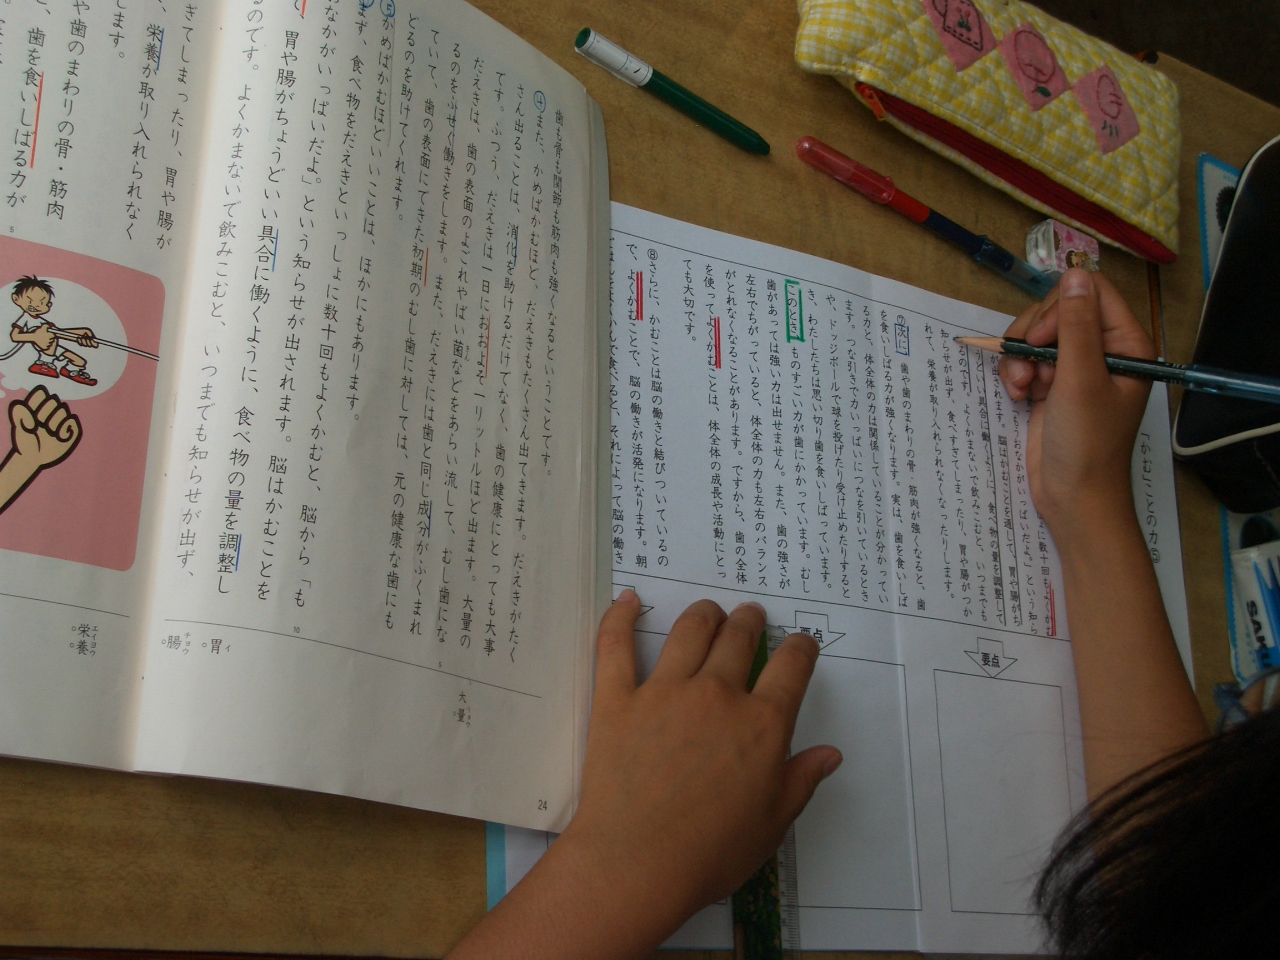 歯も骨も関節も筋肉も強くなるということです。
④また、かめばかむほど、だえきもたくさん出てきます。だえきがたく
さん出ることは、消化を助けるだけでなく、歯の健康にとっても大事
です。ふつう、だえきは一日におおよそ一リットルほど出ます。大量の
だえきは、歯の表面のよごれやばい菌などをあらい流して、むし歯にな
るのをふせぐ働きをします。また、だえきには歯と同じ成分がふくまれ
ていて、歯の表面にできた初期のむし歯に対しては、元の健康な歯にも
どるのを助けてくれます。
⑤かめばかむほどいいことは、ほかにもあります。
まず、食べ物をだえきといっしょに数十回もよくかむと、脳から「も
うおなかがいっぱいだよ。」という知らせが出されます。脳はかむことを
て、胃や腸がちょうどいい具合に働くように、食べ物の量を調整し
るのです。よくかまないで飲みこむと、いつまでも知らせが出ず、
ぎてしまったり、胃や腸が
、栄養が取り入れられなく
します。
や歯のまわりの骨・筋肉
歯を食いしばる力が
大量
胃
腸
栄養
5
10
5
24
「かむ」ことの力⑤
に数十回もよくかむ
「もうおなかがいっぱいだよ。」という知ら
が出されます。脳はかむことを通して、胃や腸がち
うどいい具合に働くように、食べ物の量を調整して
るのです。よくかまないで飲みこむと、いつまでも
知らせが出ず、食べすぎてしまったり、胃や腸がつか
れて、栄養が取り入れられなくなったりします。
⑦次に、歯や歯のまわりの骨・筋肉が強くなると、歯
を食いしばる力が強くなります。実は、歯を食いしば
る力と、体全体の力は関係していることが分かってい
ます。つな引きで力いっぱいにつなを引いているとき
や、ドッジボールで球を投げたり受け止めたりすると
き、わたしたちは思い切り歯を食いしばっています。
このとき、ものすごい力が歯にかかっています。むし
歯があっては強い力は出せません。また、歯の強さが
左右でちがっていると、体全体の力も左右のバランス
がとれなくなることがあります。ですから、歯の全体
を使ってよくかむことは、体全体の成長や活動にとっ
ても大切です。
⑧さらに、かむことは脳の働きと結びついているの
で、よくかむことで、脳の働きが活発になります。朝
要点
要点